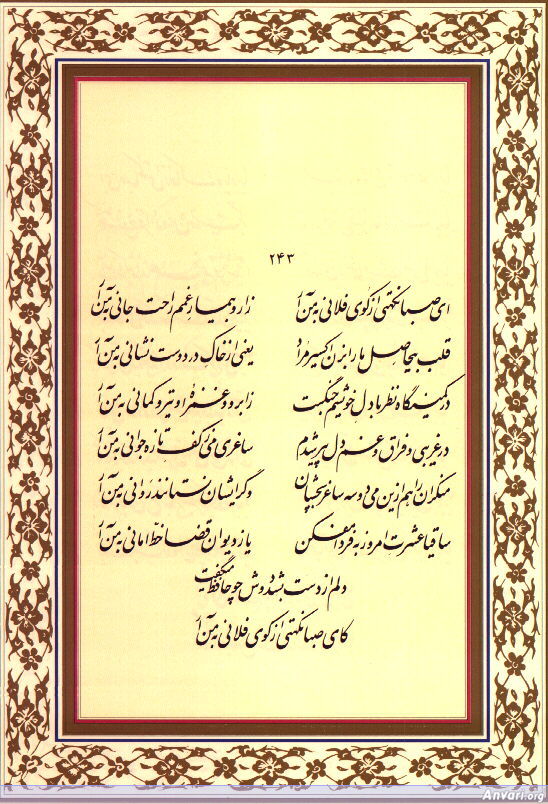 ۲۴۳
ای صبا نکهتی از کوی فلانی به من آر زار و بیمار غمم راحت جانی به من آر
قلب بیحاصل ما را بزن اکسیر مراد یعنی از خاک در دوست نشانی به من آر
در کمینگاه نظر با دل خویشم جنگست ز ابرو و غمزهٔ او تیر و کمانی به من آر
در غریبی و فراق و غم دل پیر شدم ساغری می ز کف تازه جوانی به من آر
منکران را هم ازین می دو سه ساغر بچشان وگر ایشان نستانند روانی به من آر
ساقیا عشرت امروز به فردا مفکن یا ز دیوان قضا خط امانی به من آر
دلم از دست بشد دوش چو حافظ میگفت
کای صبا نکهتی از کوی فلانی به من آر
Anvari.org